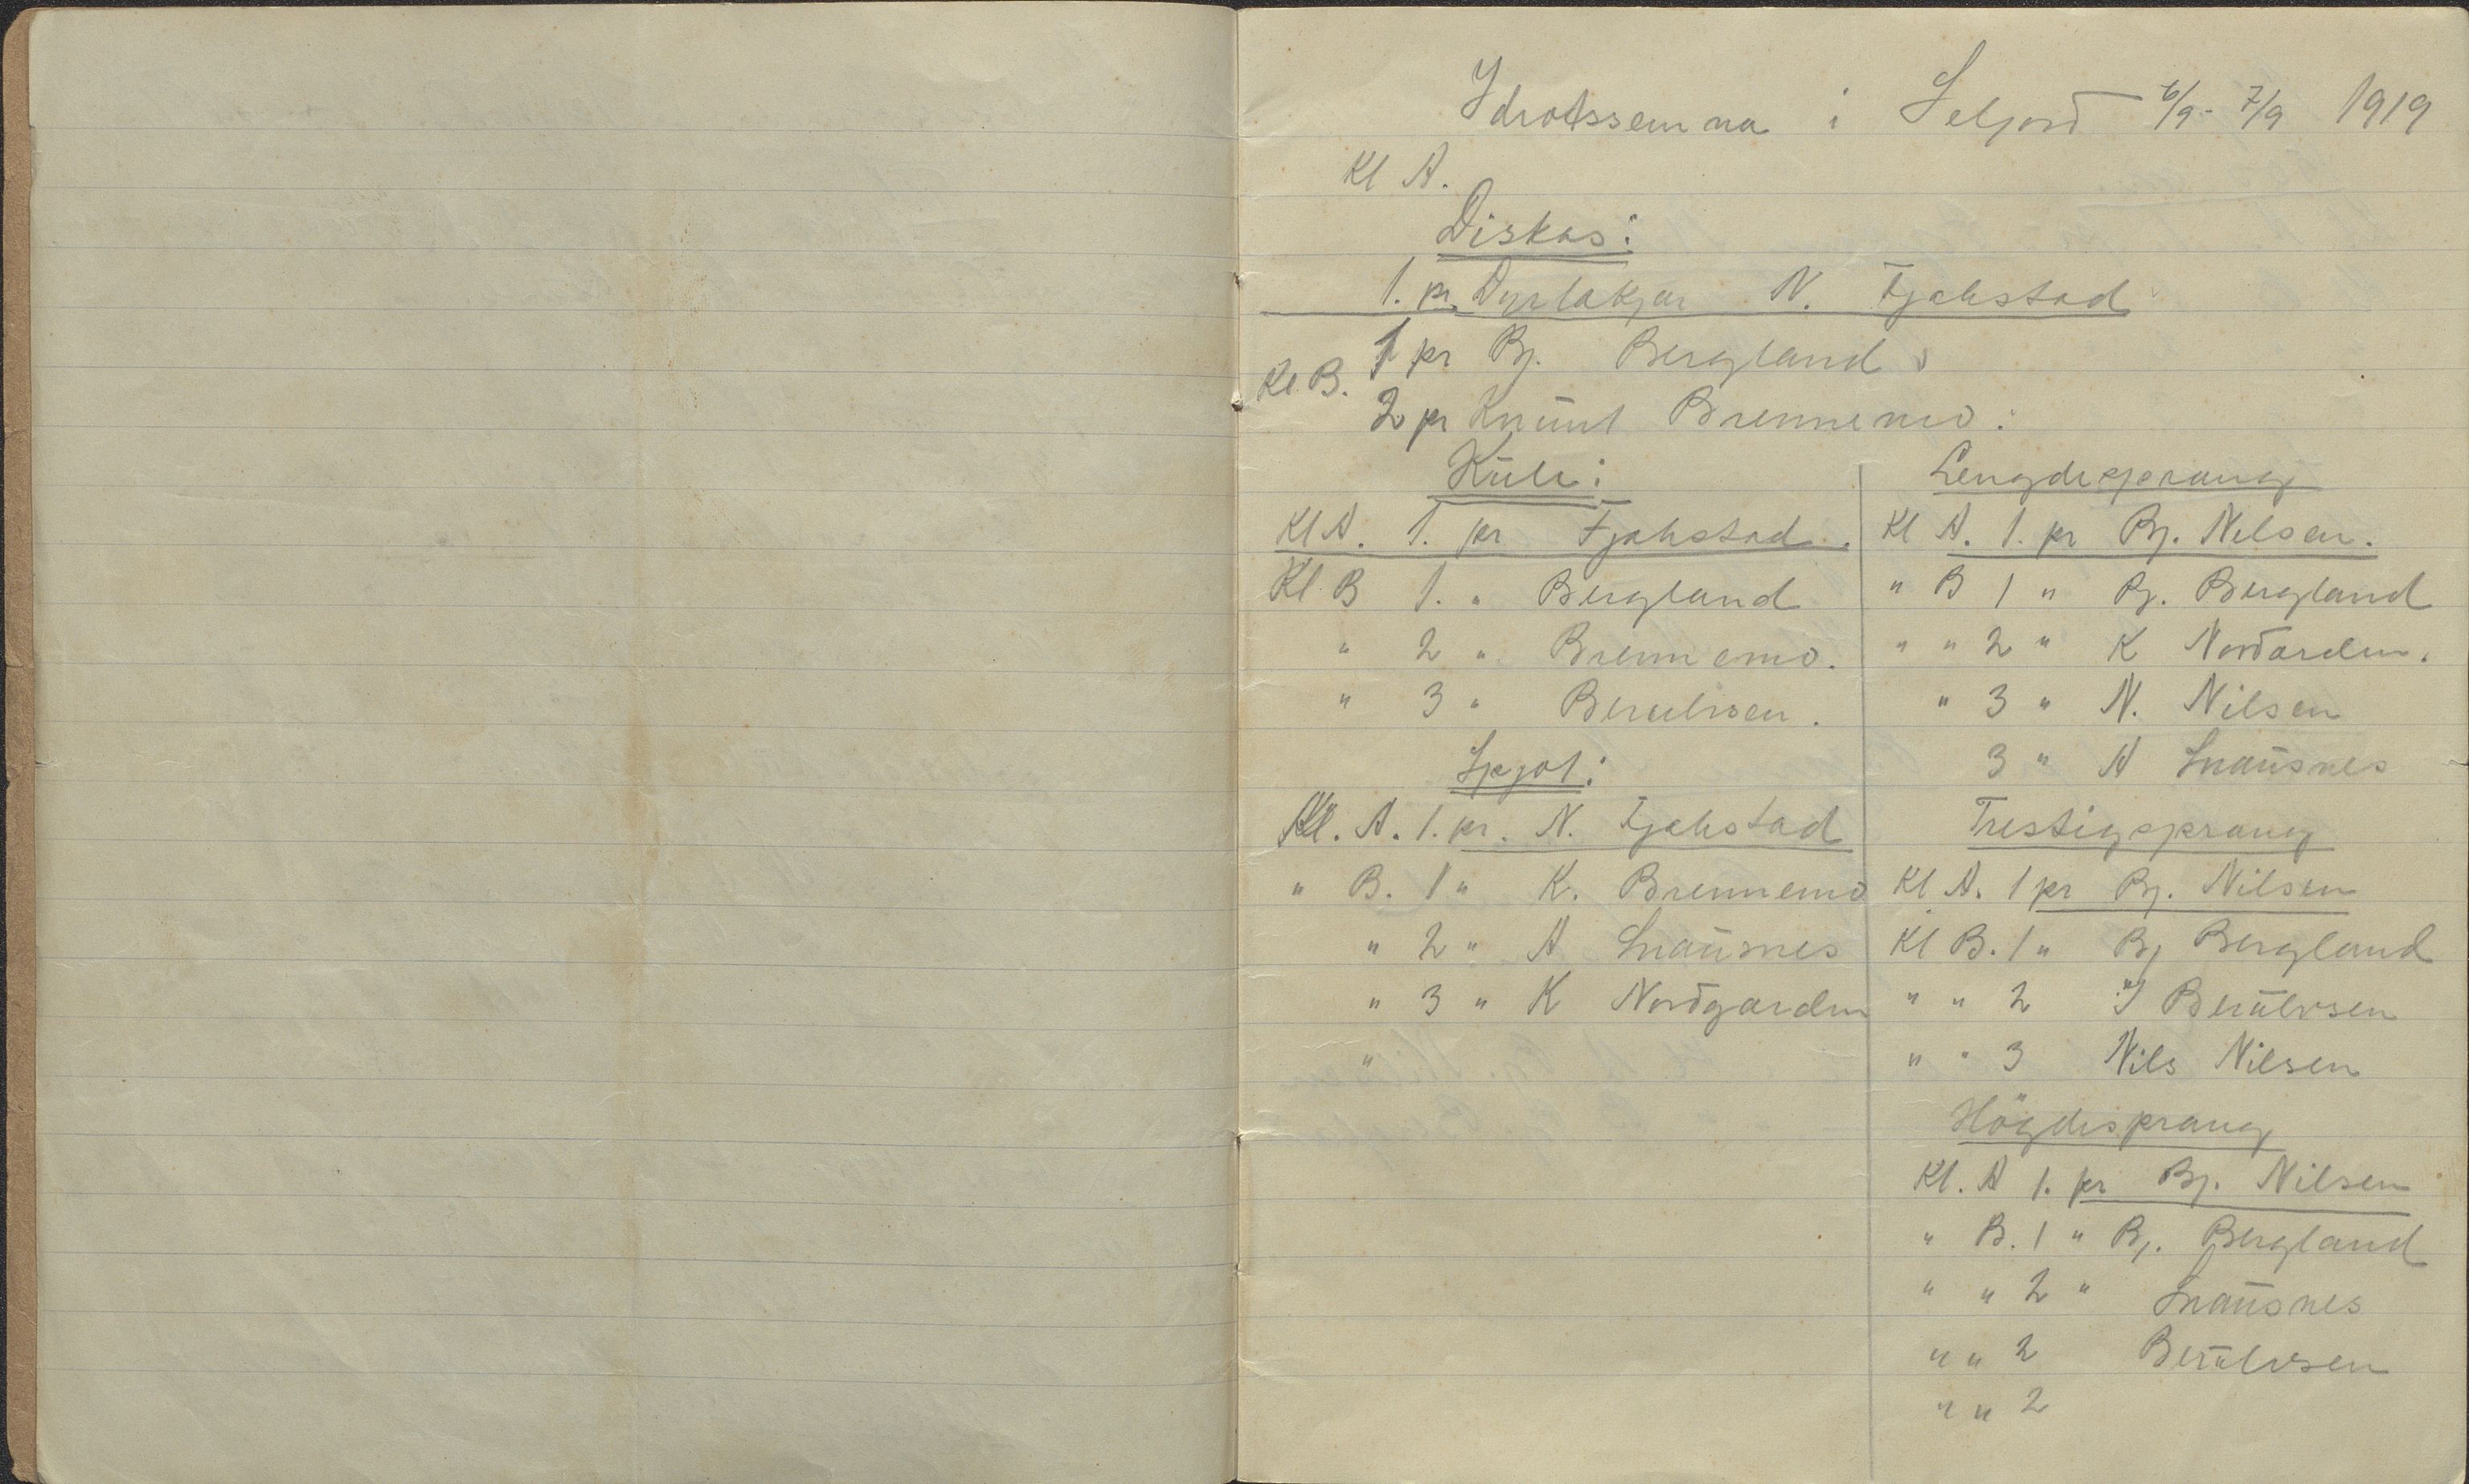 Idrotsstemna i Seljord 6/9 - 7/9 1919
Kl A.
Diskos:
1. pr. Dyrlækjar N. Fjahstad
Kl. B. 1 pr Bj. Bergland
2 pr Knut Brennemo.
Kule:
Kl A. 1. pr Fjahstad.
Kl. B 1. " Bergland
" 2 " Brennemo.
" 3 " Berulvsen.
Spjot:
Kl. A. 1. pr. N. Fjahstad
" B. 1 " K. Brennemo
" 2 " A Snausnes
" 3 " K Nordgarden
"
Lengdesprang
Kl A. 1. pr Bj. Nilsen.
" B 1 " Bj. Bergland
" " 2 " K Nordarden.
" 3 " N. Nilsen
3 " A Snausnes
Trestigsprang
Kl A. 1 pr Bj. Nilsen
Kl B. 1 " Bj Bergland
" " 2 " J Berulvsen
" " 3 Nils Nilsen
Högdesprang
Kl. A 1. pr Bj. Nilsen
" B. 1 " Bj. Bergland
" " 2 " Snausnes
" " 2 Berulvsen
" " 2